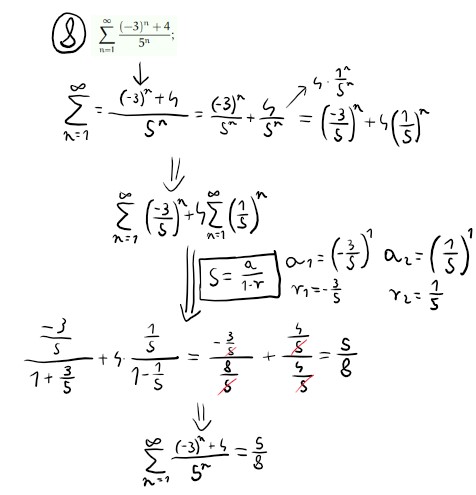 8 ∑_{n=1}^{∞} ((-3)^n + 4)/5^n;
4 · 1^n/5^n
∑_{n=1}^{∞} = ((-3)^n + 4)/5^n = (-3)^n/5^n + 4/5^n = (-3/5)^n + 4(1/5)^n
∑_{n=1}^{∞} (-3/5)^n + 4∑_{n=1}^{∞} (1/5)^n
S = a/(1-r) a_1 = (-3/5)^1 a_2 = (1/5)^1
r_1 = -3/5 r_2 = 1/5
(-3/5)/(1 + 3/5) + 4 · (1/5)/(1 - 1/5) = (-3/5)/(8/5) + (4/5)/(4/5) = 5/8
∑_{n=1}^{∞} ((-3)^n + 4)/5^n = 5/8